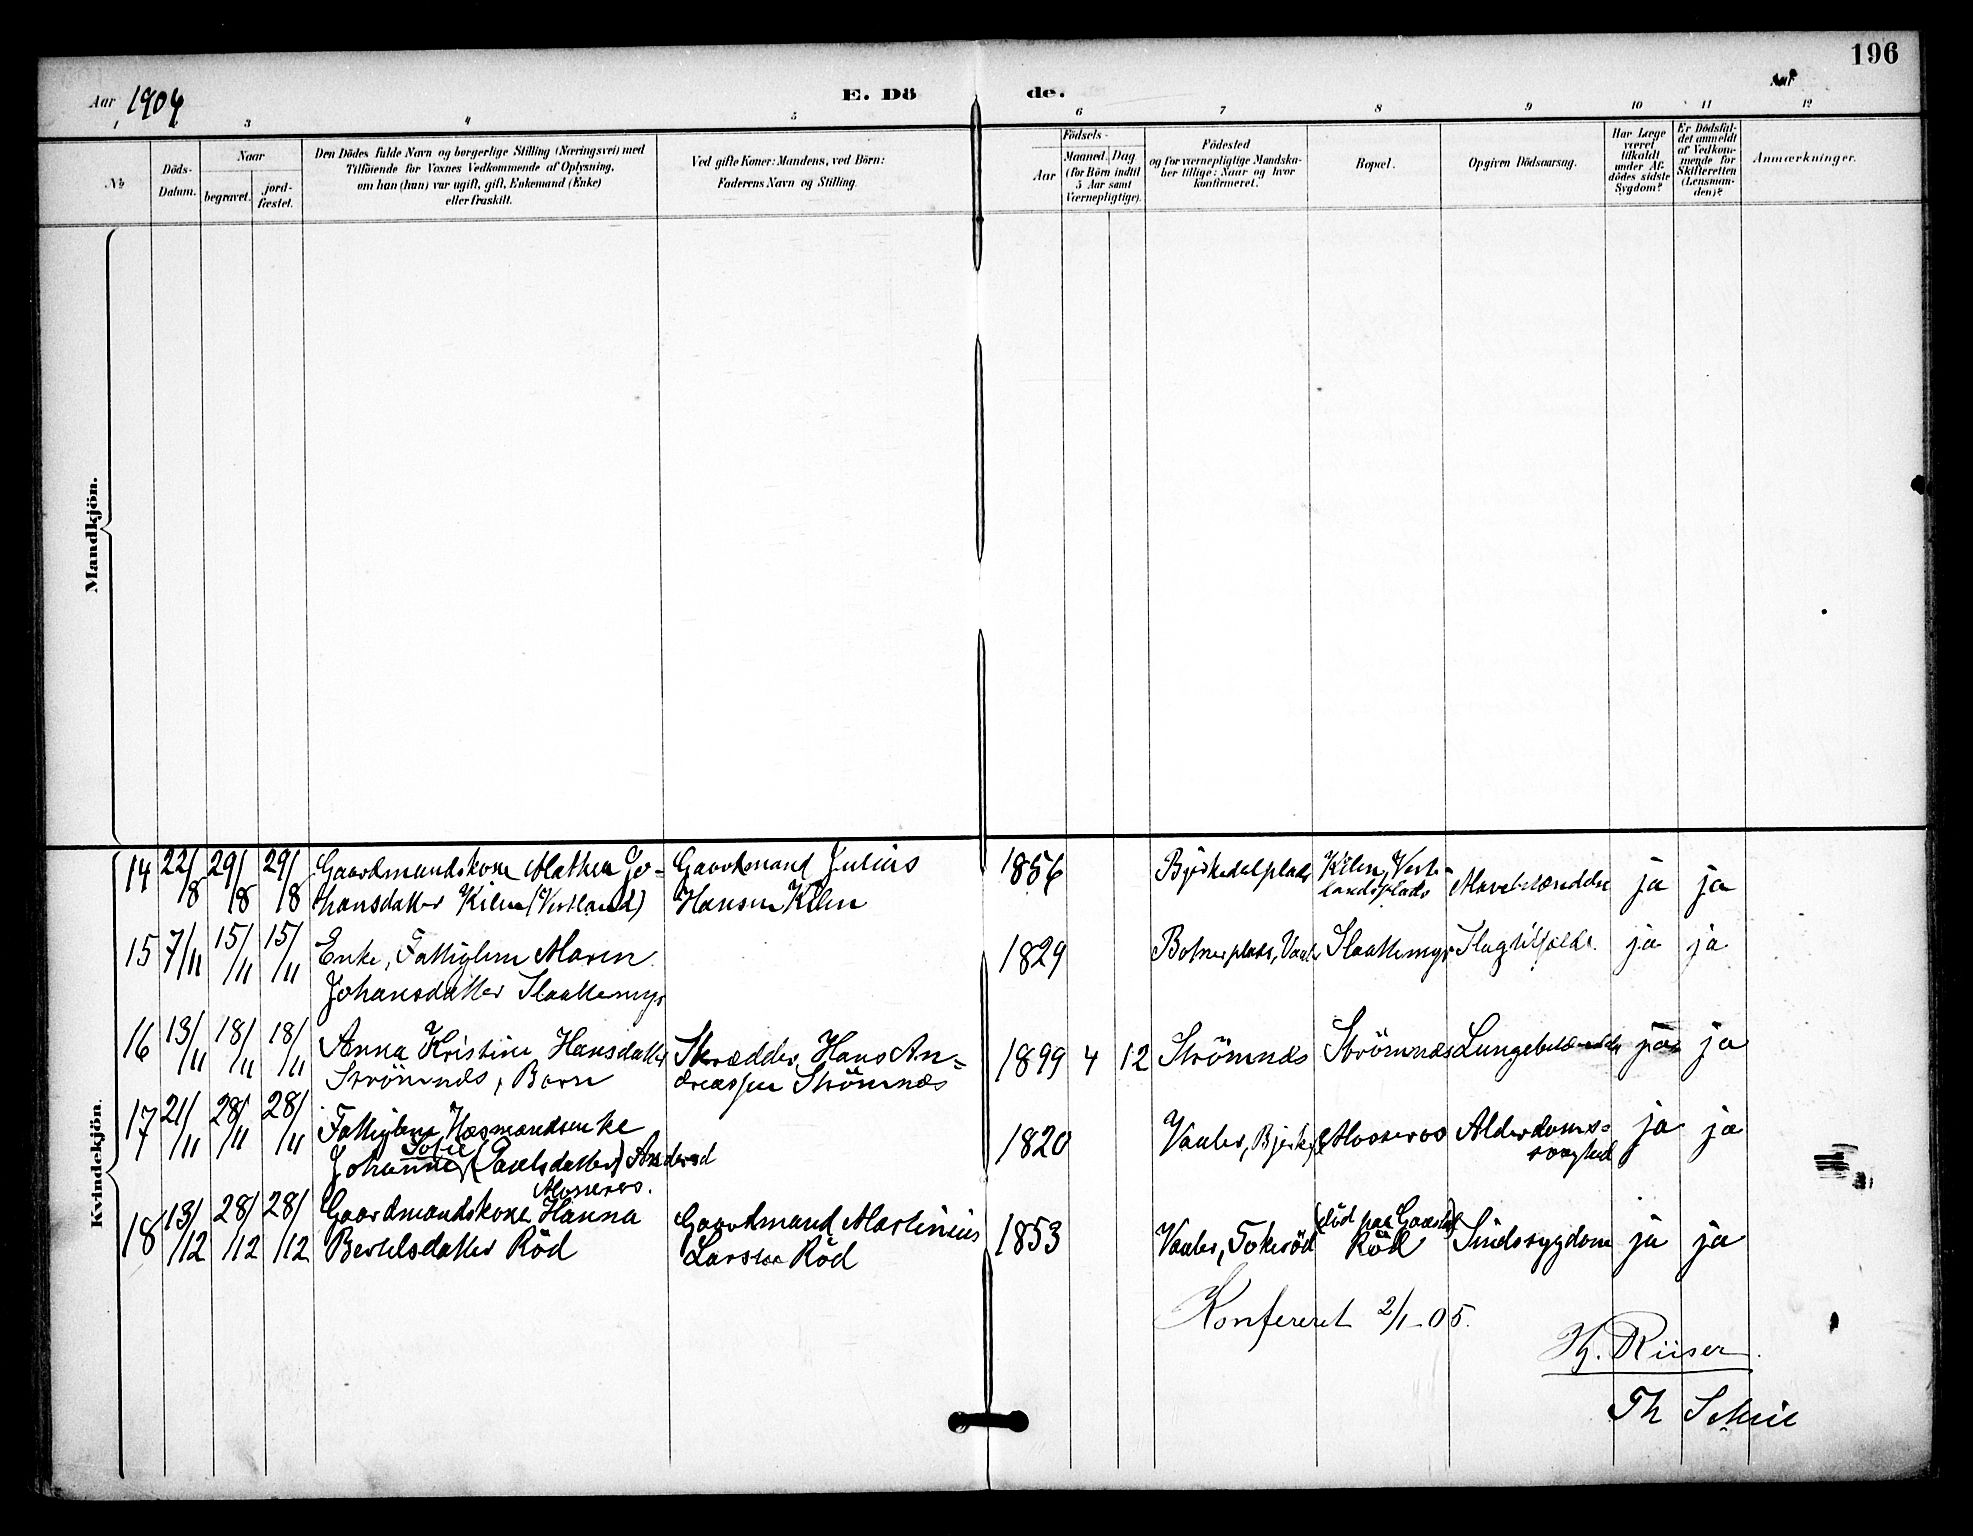 196
Aar 1904
E. Dö de.
Aar
1 2 3 4 5 6 7 8 9 10 11 12
No
Döds-
Datum.
Naar
begravet.
jord-
fæstet.
Den Dödes fulde Navn og borgerlige Stilling (Næringsvei) med
Tilföiende for Voxnes Vedkommende af Oplysning,
om han (hun) var ugift, gift, Enkemand (Enke)
eller fraskilt.
Ved gifte Koner: Mandens, ved Börn:
Faderens Navn og Stilling.
Födsels-
Aar
Maaned. Dag
(for Börn indtil
5 Aar samt
Værnepligtige).
Födested
og for værnepligtige Mandska-
ber tillige: Naar og hvor
konfirmeret.
Bopæl.
Opgiven Dödsaarsag.
Har Læge
været
tilkaldt
under Af-
dödes sidste
Sygdom?
Er Dödsfal-
det anmeldt
af Vedkom-
mende for
Skifteretten
(Lensman-
den)?
Anmærkninger.
Mandkjön.
Kvindekjön.
14 22/8 29/8 29/8 Gaardmandskone Mathea Jo-
hansdatter Kilen (Vestland)
Gaardmand Julius
Hansen Kilen
1856 Kilen, Vest-
landsplads
ja ja
15 7/11 15/11 15/11 Enke, Fattiglem Maren
Johansdatter Slaattemyr
1829 Slaattemyr ja ja
16 13/11 18/11 18/11 Anna Kristine Hansdatter
Strömnæs, Barn
Skrædder Hans An-
dreassen Strömnæs
1899 4 12 Strömnæs Strömnæs Lungebetændelse ja ja
17 21/11 28/11 28/11 Fattiglem Husmandsenke
Sofie
Johanne (Paulsdatter)
Mosseros.
1820 Mosseros Alderdoms-
svaghed
ja ja
18 13/12 28/12 28/12 Gaardmandskone Hanna
Bertelsdatter Röd
Gaardmand Martinius
Larsen Röd
1853 Vaaler, (död paa Gaustad)
Röd
Sindssygdom ja ja
Konfereret 2/1-05.
H. Riiser.
Th